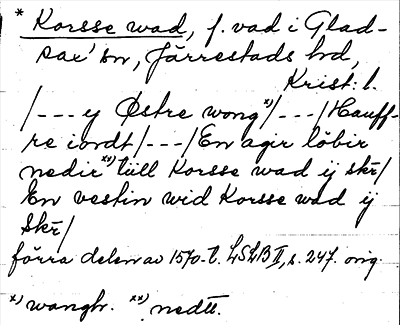 * Korsse wad, f. vad i Glad-
sax' sn, Järrestads hd,
Krist: l.
/--- ij Østre wong x)/---/Hauff-
re iordt/---/En agir löbir
nedir xx) till Korsse wad ij skr/
En vestin wid Korsse wad ij
skr/
förra delen av 1570-t. LSLB II, s. 247. orig.
x) wangh. xx) nedtt.